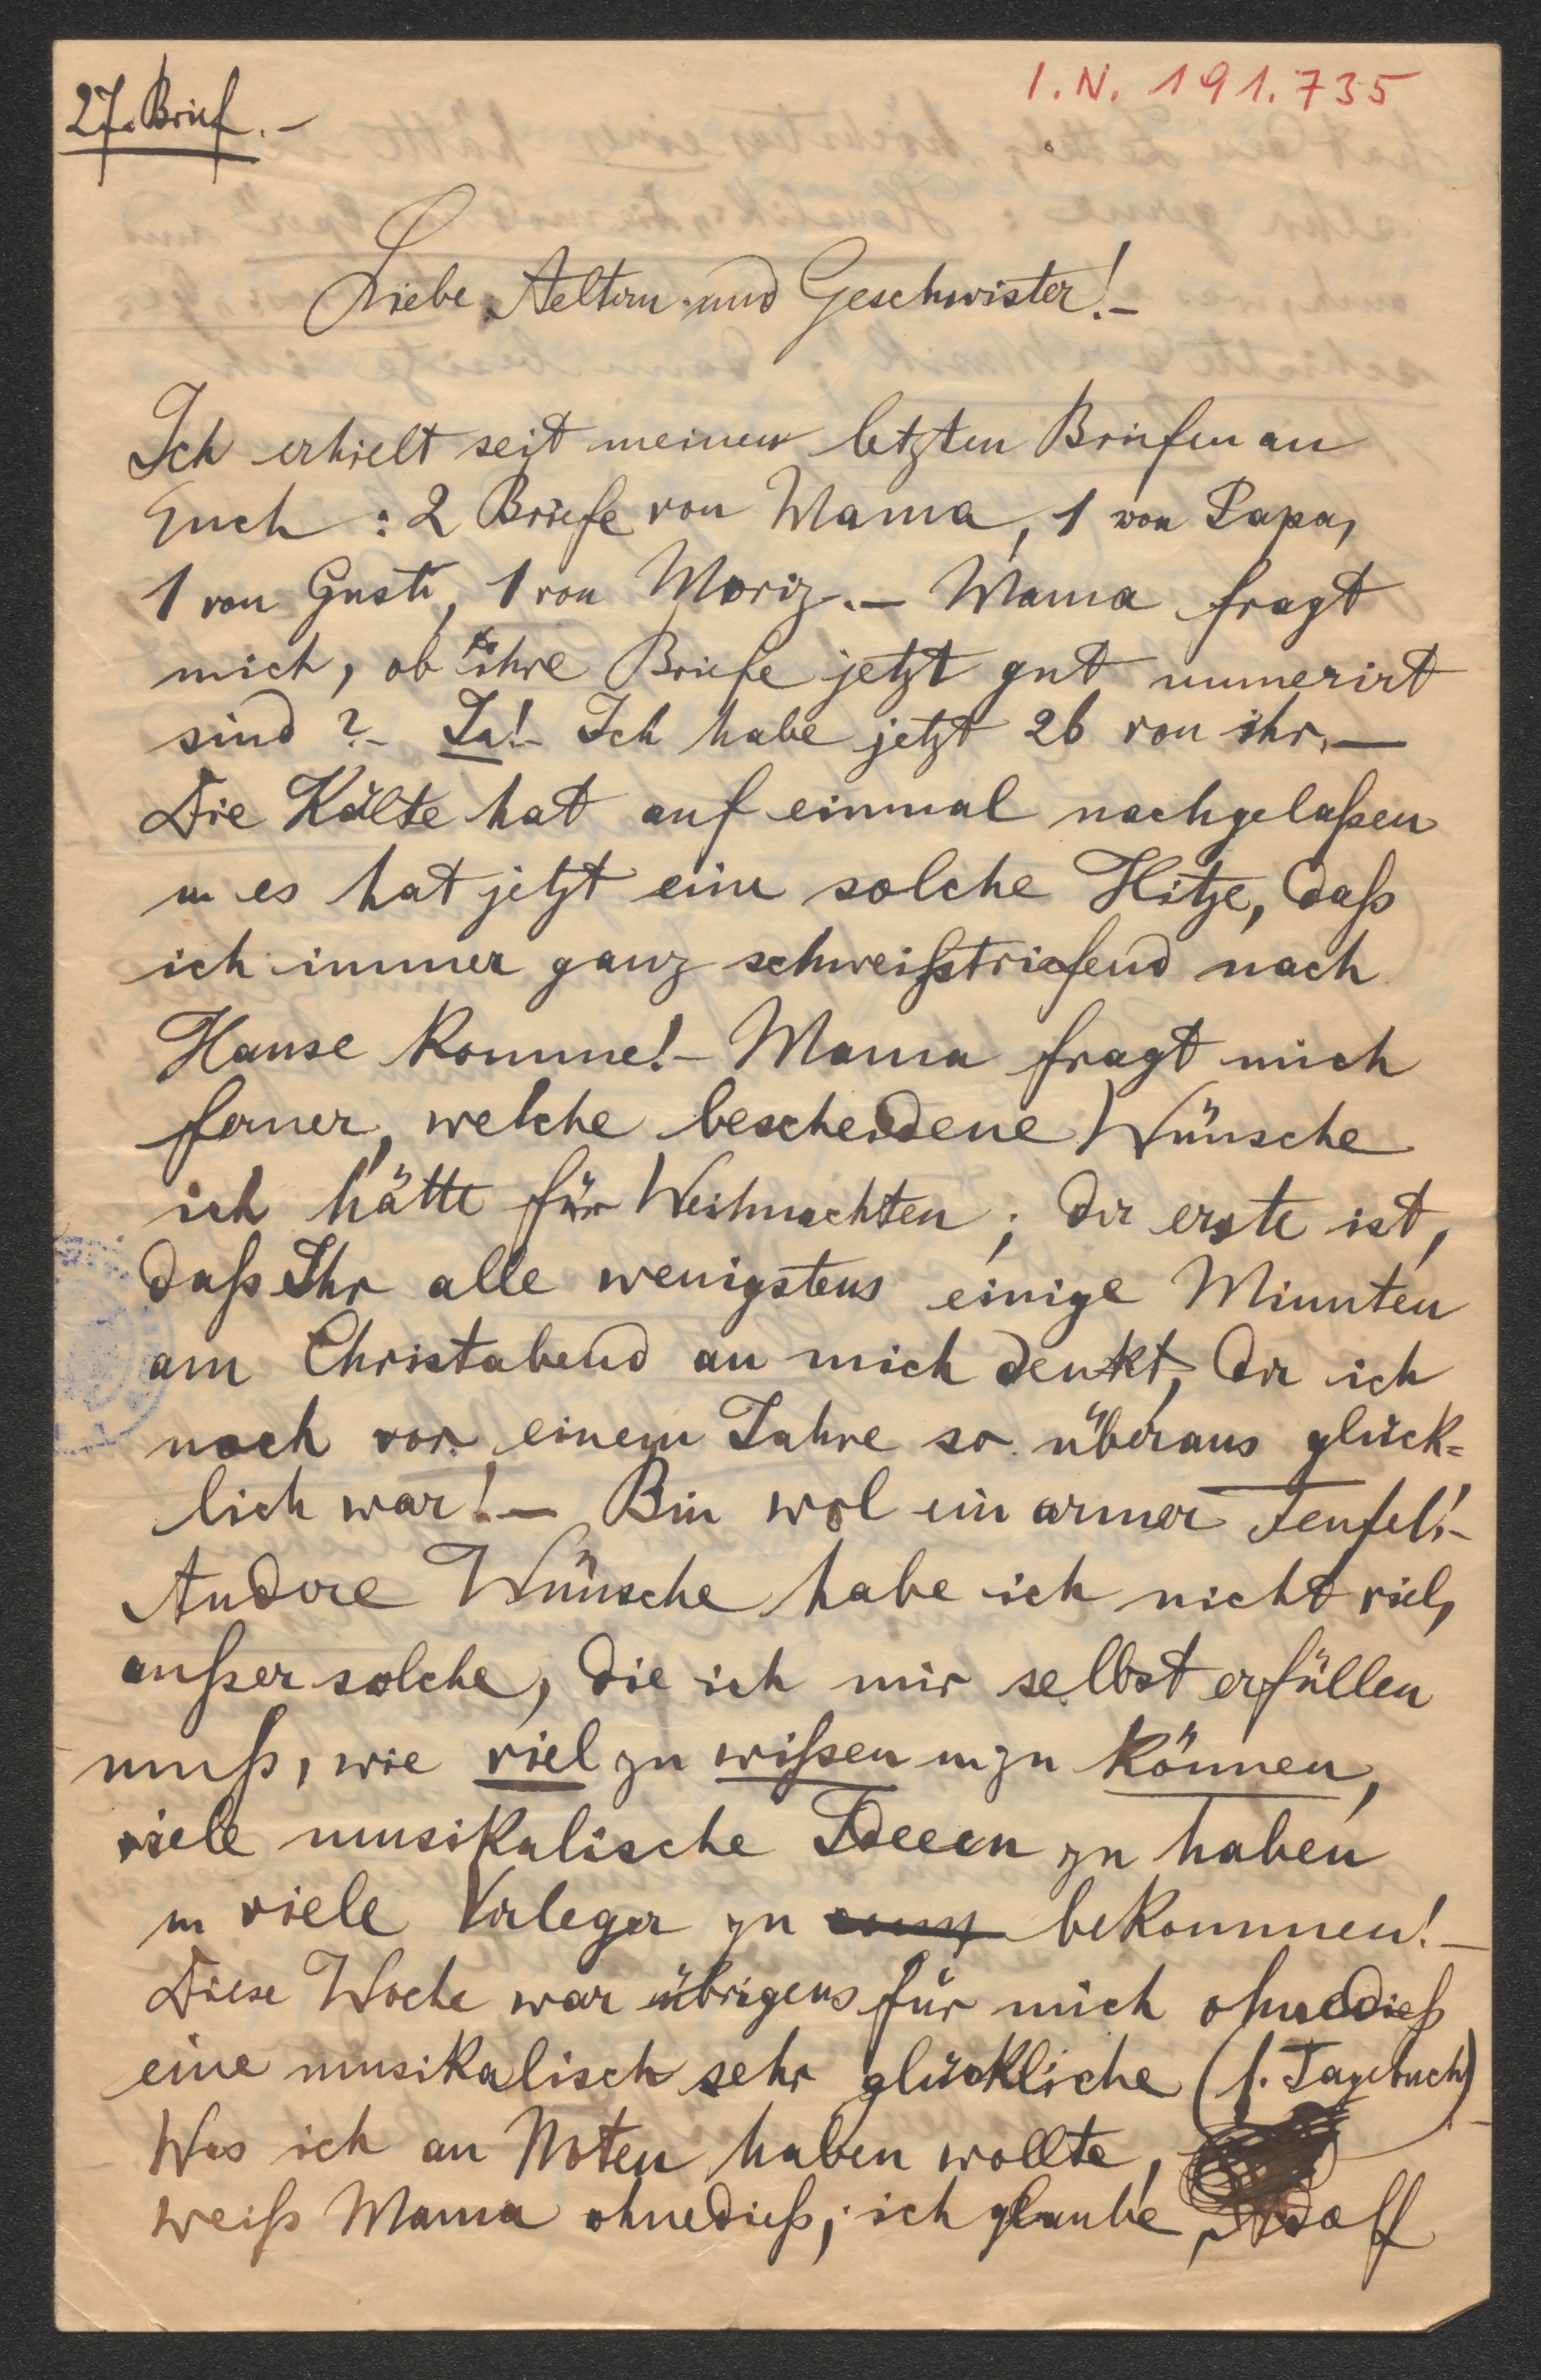 27. Brief.-
I.N. 191.735
Liebe Aeltern und Geschwister!-
Ich erhielt seit meinen letzten Briefen an
Euch : 2 Briefe von Mama, 1 von Papa,
1 von Gusti, 1 von Moriz.- Mama fragt
mich, ob ihre Briefe jetzt gut numerirt
sind ?- Ja!- Ich habe jetzt 26 von ihr.-
Die Kälte hat auf einmal nachgelaßen
u es hat jetzt eine solche Hitze, daß
ich immer ganz schweißtriefend nach
Hause komme!- Mama fragt mich
ferner, welche bescheidene Wünsche
ich hätte für Weihnachten ; der erste ist,
daß Ihr alle wenigstens einige Minuten
am Christabend an mich denkt, der ich
noch vor einem Jahre so überaus glück=
lich war!- Bin wol ein armer Teufel!-
Andere Wünsche habe ich nicht viel,
außer solche, die ich mir selbst erfüllen
muß, wie viel zu wißen u zu können,
viele musikalische Ideeen zu haben
u viele Verleger zu bekommen!-
Diese Woche war übrigens für mich ohnedieß
eine musikalisch sehr glückliche (s. Tagebuch)-
Was ich an Noten haben wollte,
weiß Mama ohnedieß; ich glaube, Adolf